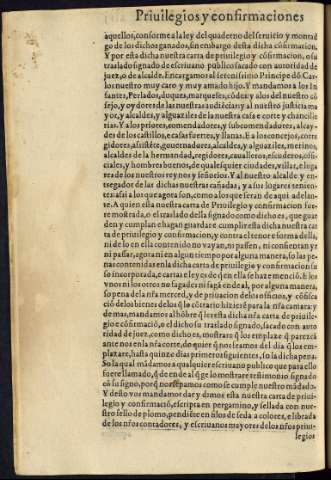 Priuilegios y confirmaciones
aquellos, conforme a la ley del quaderno del seruicio y montaz
go de los dichos ganados, sin embargo desta dicha cõfirmacion.
Y por esta dicha nuestra carta de priuilegio y cõfirmacion, o su
traslado signado de escriuano publico sacado con autoridad de
juez, o de alcalde. Encargamos al serenissimo Principe dõ Car
los nuestro muy caro y muy amado hijo. Y mandamos a los In
fantes, Perlados, duques, marqueses, cõdes, y a los del nuestro cõ
sejo, y oydores de las nuestras audiẽcias y al nuestro justicia ma
yor, y alcaldes, y alguaziles de la nuestra casa e corte y chancille
rias. Y a los priores, comendadores, y subcomendadores, alcay-
des de los castillos, e casas fuertes, y llanas. E a los concejos, corre
gidores, assistẽte, gouernadores, alcaldes, y alguaziles, merinos,
alcaldes de la hermandad, regidores, caualleros, escuderos, offi-
ciales, y hombres buenos, de qualesquier ciudades, villas, e luga
res de los nuestros reynos y señorios. Y al nuestro alcalde y en
tregador de las dichas nuestras cañadas, y a sus lugares tenien-
tes: assi a los que agora son, como a los que seran de aqui adelan-
te. A quien esta nuestra carta de Priuilegio y confirmacion fue
re mostrada, o el traslado della signado como dicho es, que guar
den y cumplan e hagan guardar e cumplir esta dicha nuestra car
ta de priuilegio y confirmacion, y contra el tenor e forma della,
ni de lo en ella contenido no vayan, ni passen, ni consientan yr
ni passar, agora ni en algun tiempo por alguna manera, so las pe
nas contenidas en la dicha carta de priuilegio y confirmacion su
so incorporada, e cartas e leyes de q̃ en ella se haze menciõ. E los
vnos ni los otros no fagades ni fagã ende al, por alguna manera,
so pena de la nr̃a merced, y de priuacion de los officios, y cõfisca
ciõ de los bienes de los q̃ lo cõtrario hizierẽ para la nr̃a camara: y
de mas, mandamos al hõbre q̃ les esta dicha nr̃a carta de priuile-
gio e cõfirmaciõ, o el dicho su traslado signado, sacado con auto
ridad de juez, como dicho es, mostrare q̃ los emplaze q̃ parezcã
ante nos en la nr̃a corte, do quier q̃ nos seamos del dia q̃ los em-
plazare, hasta quinze dias primeros siguientes, so la dicha pena.
So la qual mãdamos a qualquier escriuano publico que para ello
fuere llamado, q̃ de ende al q̃ ge lo mostrare testimonio signado
cõ su signo, porq̃ nos sepamos como se cumple nuestro mãdado.
Y desto vos mandamos dar y dimos esta nuestra carta de priui-
legio y confirmaciõ, escripta en pergamino, y sellada con nue-
stro sello de plomo, pendiẽte en filos de seda a colores, e librada
de los nr̃os contadores, y escriuanos mayores de los nr̃os priui-
legios